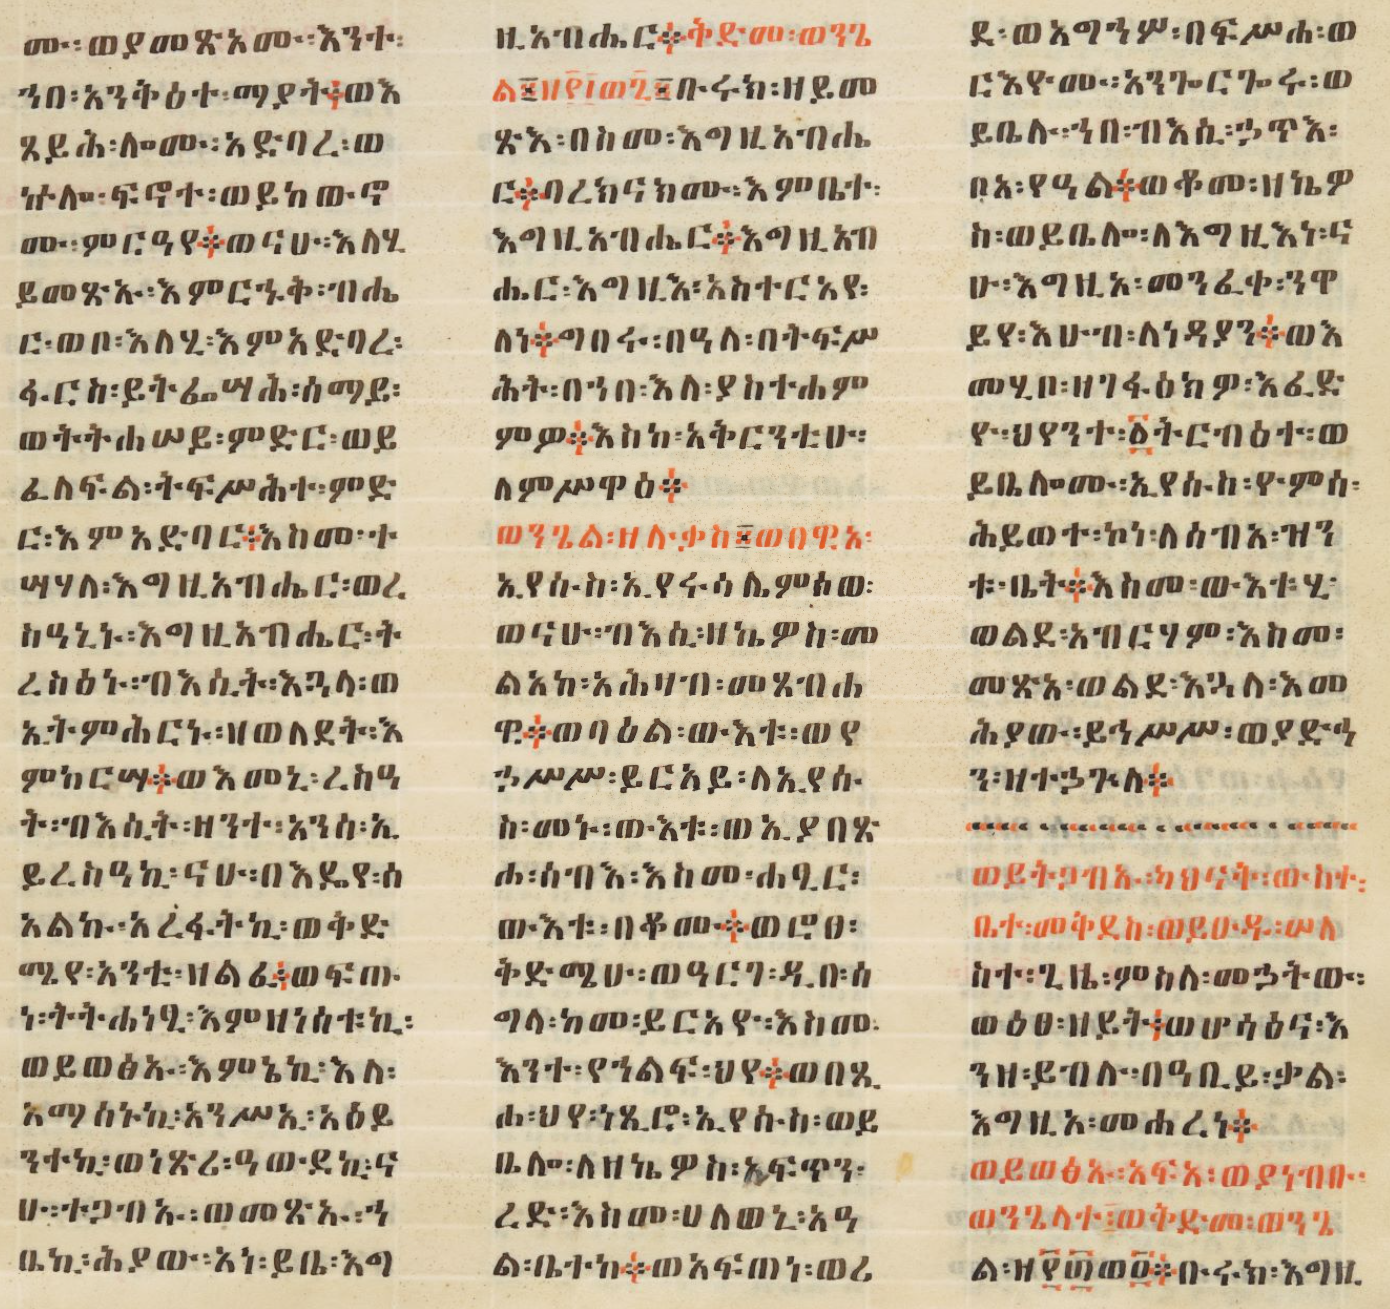 ሙ፡ወያመጽአሙ፡እንተ፡
ኀበ፡አንቅዕተ፡ማያት፨ወእ
ጼይሕ፡ሎሙ፡አድባረ፡ወ
ኵሎ፡ፍኖተ፡ወይከውኖ
ሙ፡ምርዓየ፨ወናሁ፡እለሂ
ይመጽኡ፡እምርኁቅ፡ብሔ
ር፡ወቦ፡እለሂ፡እምአድባረ፡
ፋርስ፡ይትፌሣሕ፡ሰማይ፡
ወትትሐሠይ፡ምድር፡ወይ
ፈለፍል፡ትፍሥሕተ፡ምድ
ር፡እምአድባር፨እስመ፡ተ
ሣሃለ፡እግዚአብሔር፡ወረ
ስዓኒኑ፡እግዚአብሔር፡ት
ረስዕኑ፡ብእሲት፡እጓላ፡ወ
ኢትምሕርኑ፡ዘወለደት፡እ
ምከርሣ፨ወእመኒ፡ረስዓ
ት፡ብእሲት፡ዘንተ፡አንሰ፡ኢ
ይረስዓኪ፡ናሁ፡በእዴየ፡ሰ
አልኩ፡አረፋትኪ፡ወቅድ
ሜየ፡አንቲ፡ዘልፈ፨ወፍጡ
ነ፡ትትሐነፂ፡እምዘነሰቱኪ፡
ወይወፅኡ፡እምኔኪ፡እለ፡
አማሰኑኪ፡አንሥኢ፡አዕይ
ንተኪ፡ወነጽሪ፡ዓውደኪ፡ና
ሁ፡ተጋብኡ፡ወመጽኡ፡ኀ
ቤኪ፡ሕያው፡አነ፡ይቤ፡እግ
ዚአብሔር፨ቅድመ፡ወንጌ
ል፤ዘ፲፯ወ፯፤ቡሩክ፡ዘይመ
ጽእ፡በስመ፡እግዚአብሔ
ር፨ባረክናክሙ፡እምቤተ፡
እግዚአብሔር፨እግዚአብ
ሔር፡እግዚእ፡አስተርአየ፡
ለነ፨ግበሩ፡በዓለ፡በትፍሥ
ሕት፡በኀበ፡እለ፡ያስተሐም
ምዎ፨እስከ፡አቅርንቲሁ፡
ለምሥዋዕ፨
ወንጌል፡ዘሉቃስ፤ወበዊአ፡
ኢየሱስ፡ኢየሩሳሌምፅወ፡
ወናሁ፡ብእሲ፡ዘኬዎስ፡መ
ልአከ፡አሕዛብ፡መጸብሐ
ዊ፨ወባዕል፡ውእቱ፡ወየ
ኃሥሥ፡ይርአይ፡ለኢየሱ
ስ፡መኑ፡ውእቱ፡ወኢያበጽ
ሐ፡ሰብእ፡እስመ፡ሐፂር፡
ውእቱ፡በቆሙ፨ወሮፀ፡
ቅድሜሁ፡ወዓርገ፡ዲበ፡ሰ
ግላ፡ከመ፡ይርአዮ፡እስመ፡
እንተ፡የኀልፍ፡ህየ፨ወበጺ
ሐ፡ህየ፡ነጺሮ፡ኢየሱስ፡ወይ
ቤሎ፡ለዘኬዎስ፡አፍጥን፡
ረድ፡እስመ፡ሀለወኒ፡አዓ
ል፡ቤተከ፨ወአፍጠነ፡ወሪ
ደ፡ወአግኀሦ፡በፍሥሐ፡ወ
ርእዮሙ፡አንጐርጐሩ፡ወ
ይቤሉ፡ኀበ፡ብእሲ፡ኃጥእ፡
ቦአ፡የዓል፨ወቆመ፡ዘኬዎ
ስ፡ወይቤሎ፡ለእግዚእነ፡ና
ሁ፡እግዚአ፡መንፈቀ፡ንዋ
ይየ፡እሁብ፡ለነዳያን፨ወእ
መሂቦ፡ዘገፋዕክዎ፡እፈድ
ዮ፡ህየንተ፡፩ትርብዕተ፡ወ
ይቤሎሙ፡ኢየሱስ፡ዮምሰ፡
ሕይወተ፡ኮነ፡ለሰብአ፡ዝን
ቱ፡ቤት፨እስመ፡ውእቱሂ፡
ወልደ፡አብርሃም፡እስመ፡
መጽአ፡ወልደ፡እጓለ፡እመ
ሕያው፡ይኅሥሥ፡ወያድኅ
ን፡ዘተኃጕለ፨
ወይትጋብኡ፡ካህናት፡ውስተ፡
ቤተ፡መቅደስ፡ወይሁዱ፡ሠለ
ስተ፡ጊዜ፡ምስለ፡መኃትው፡
ወዕፀ፡ዘይት፨ወሆሳዕና፡እ
ንዘ፡ይብሉ፡በዓቢይ፡ቃል፡
እግዚአ፡መሐረነ፨
ወይወፅኡ፡አፍአ፡ወያነብቡ፡
ወንጌላተ፡ወቅድመ፡ወንጌ
ል፡ዘ፻፲ወ፬፨ቡሩክ፡እግዚ